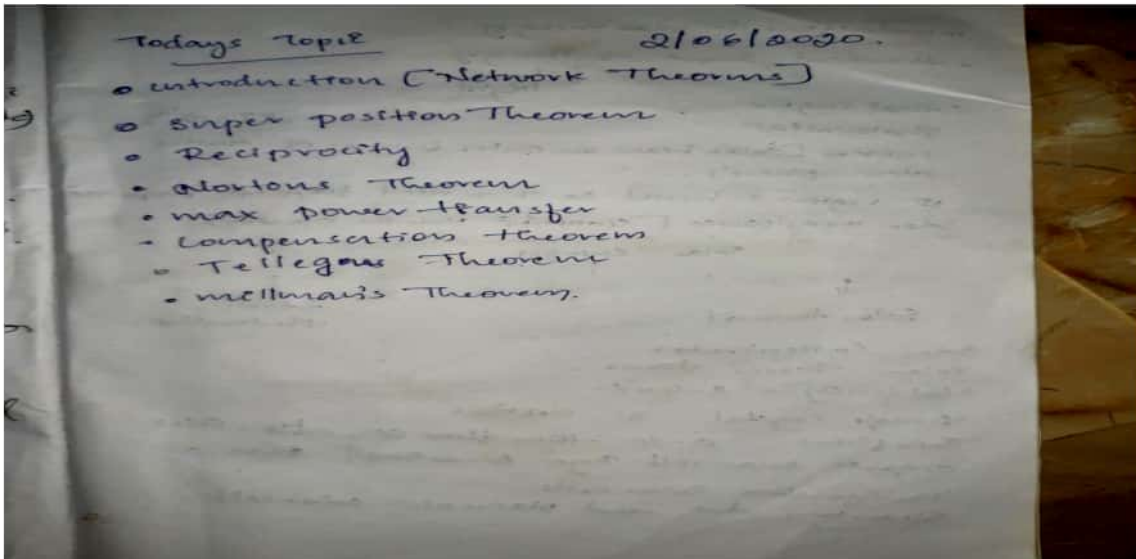 Todays Topic 2/06/2020.
• introduction [Network Theorms]
• Super position Theorem
• Reciprocity
• Nortons Theorem
• max power transfer
• compensation theorem
• Tellegons Theorem
• millman's Theorem.